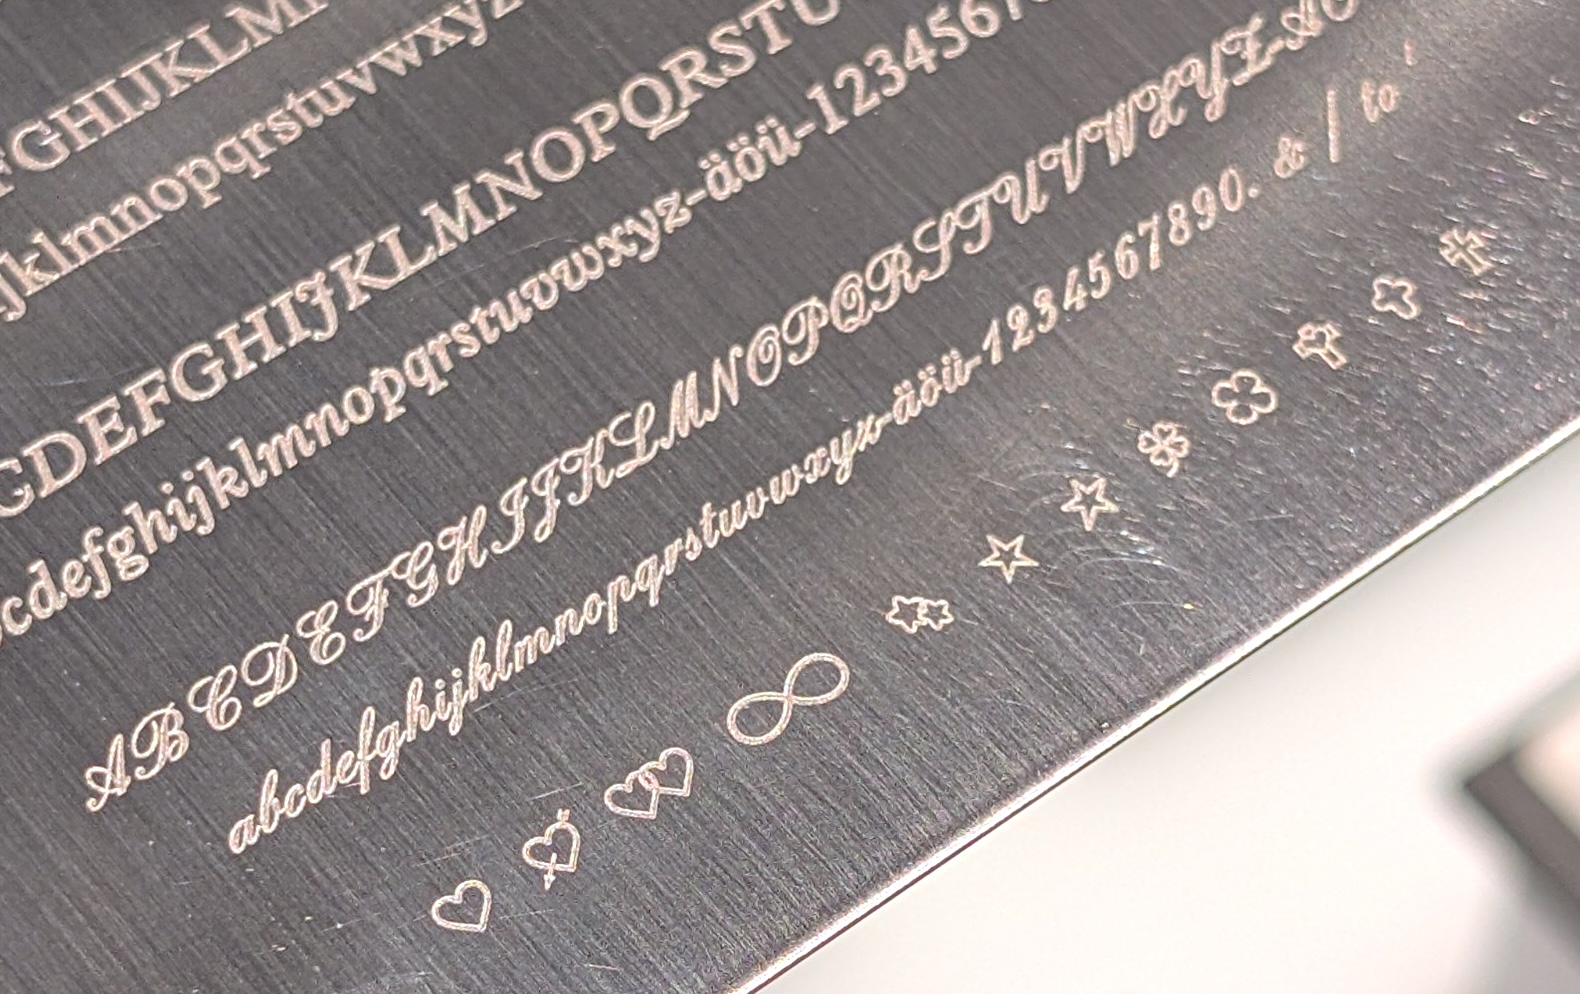 FGHIJKLM
jklmnopqrstuvwxyz
CDEFGHIJKLMNOPQRSTU
cdefghijklmnopqrstuvwxyz-äöü-1234567
ABCDEFGHIJKLMNOPQRSTUVWXYZ-ÄÖ
abcdefghijklmnopqrstuvwxyz-äöü-1234567890. & / to '